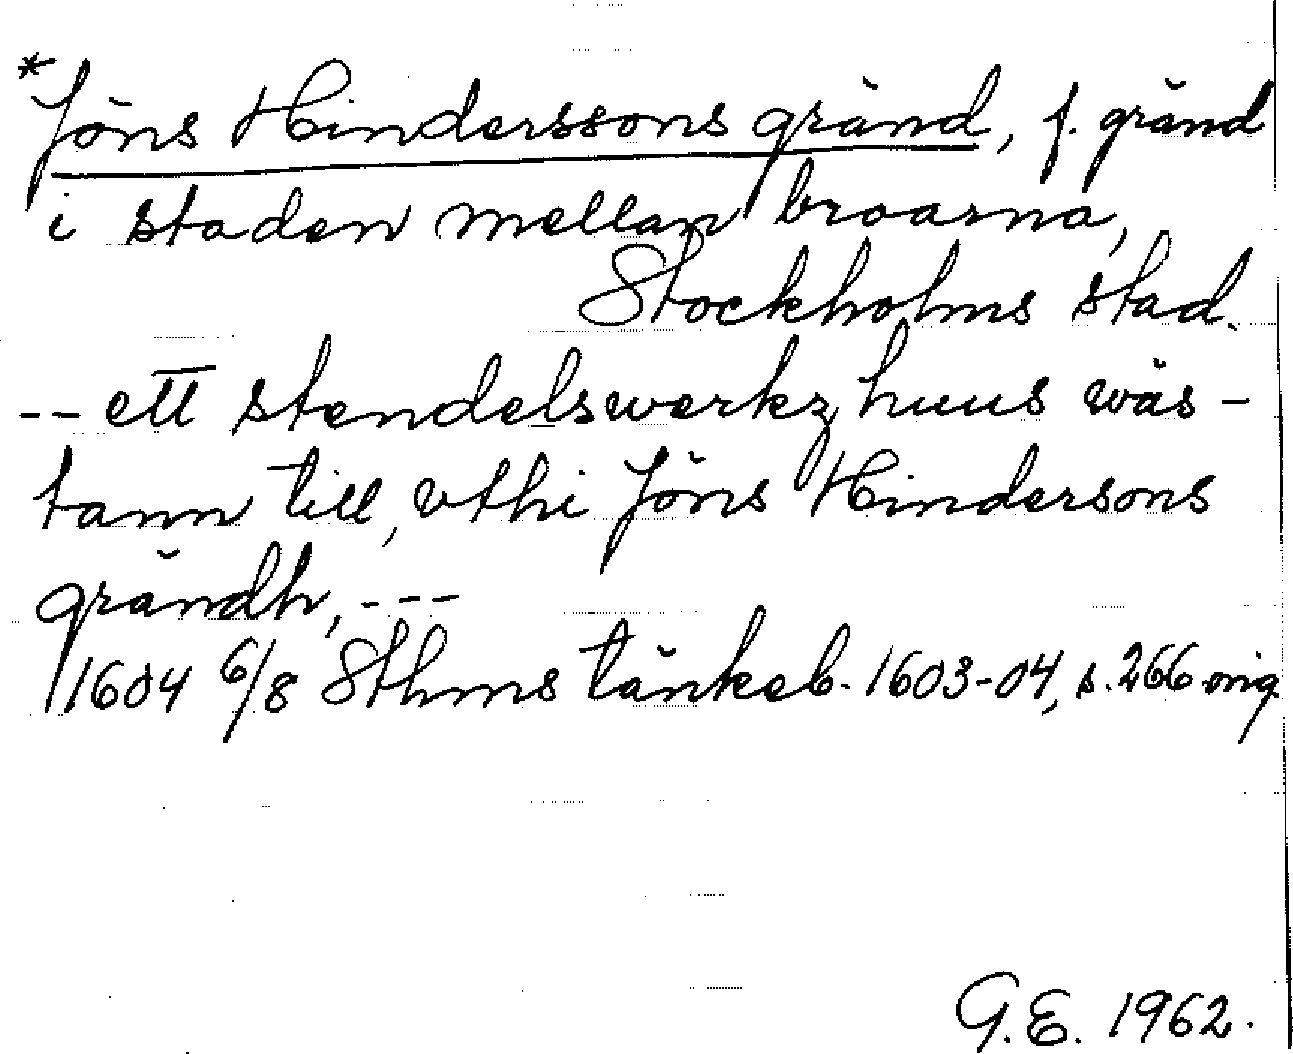 *Jöns Hinderssons gränd, f. gränd
i staden mellan broarna,
Stockholms stad.
-- ett stendelswerkz huus wäs-
tann till, vthi Jöns Hindersons
grändh, ---
1604 6/8 Sthms tänkeb. 1603-04, s. 266 orig.
G.E. 1962.